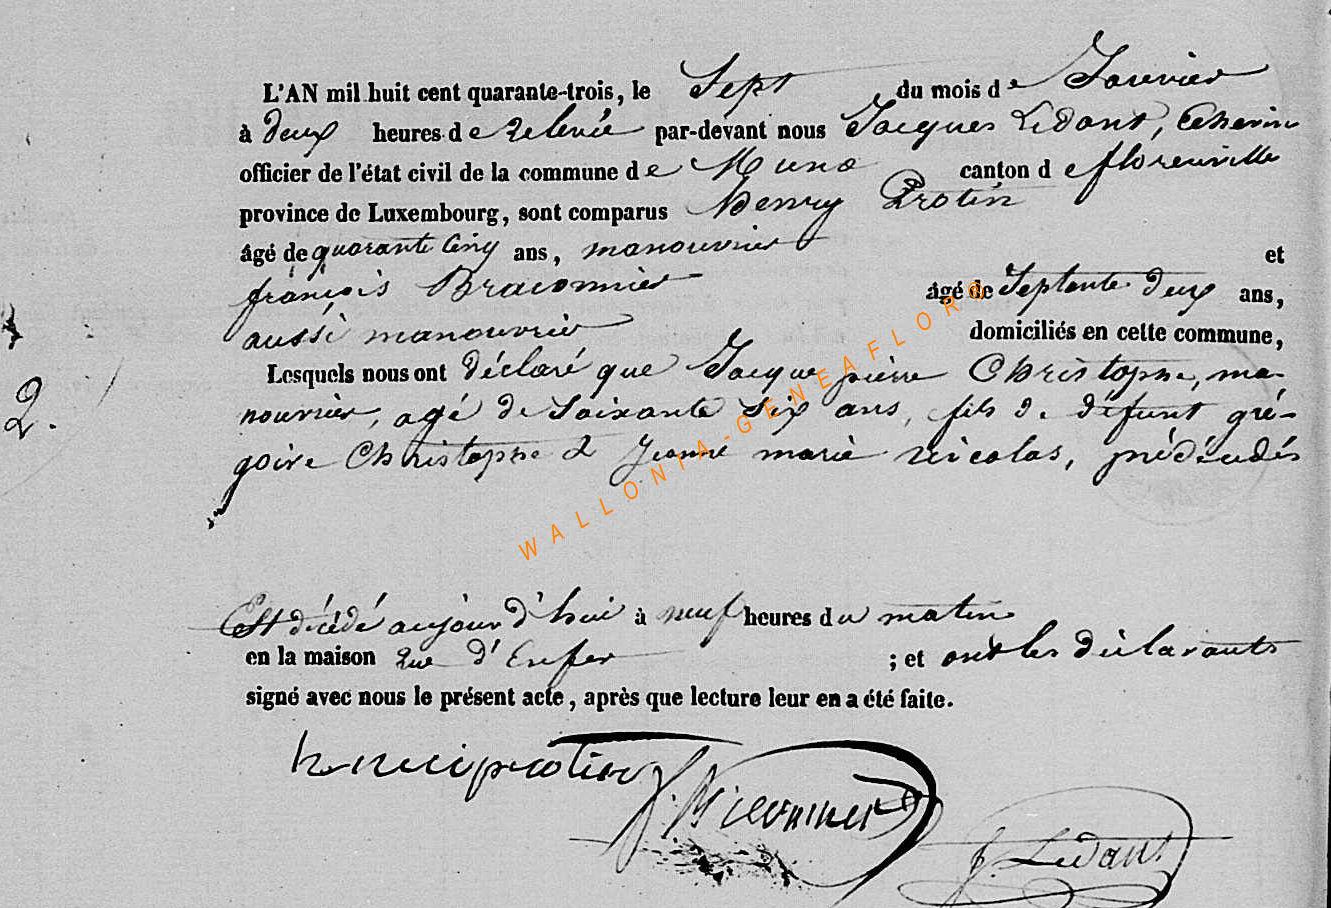 L'AN mil huit cent quarante-trois, le Sept du mois de Janvier
à deux heures de relevée par-devant nous Jacques Lédant, Echevin
officier de l'état civil de la commune de Muno canton de florenville
province de Luxembourg, sont comparus henry Protin
âgé de quarante cinq ans, manouvrier et
françois Braconnier âgé de Septante deux ans,
aussi manouvrier domiciliés en cette commune,
2. Lesquels nous ont déclaré que Jacque pierre Christophe, ma-
nouvrier, agé de Soixante Six ans, fils de défunt gré-
goire Christophe & Jeanne marie nicolas, prédécédés
WALLONIA-GENEAFLOR®
Est décédé aujourd'hui à neuf heures du matin
en la maison rue d'Enfer ; et ont les déclarants
signé avec nous le présent acte, après que lecture leur en a été faite.
J. Lédant